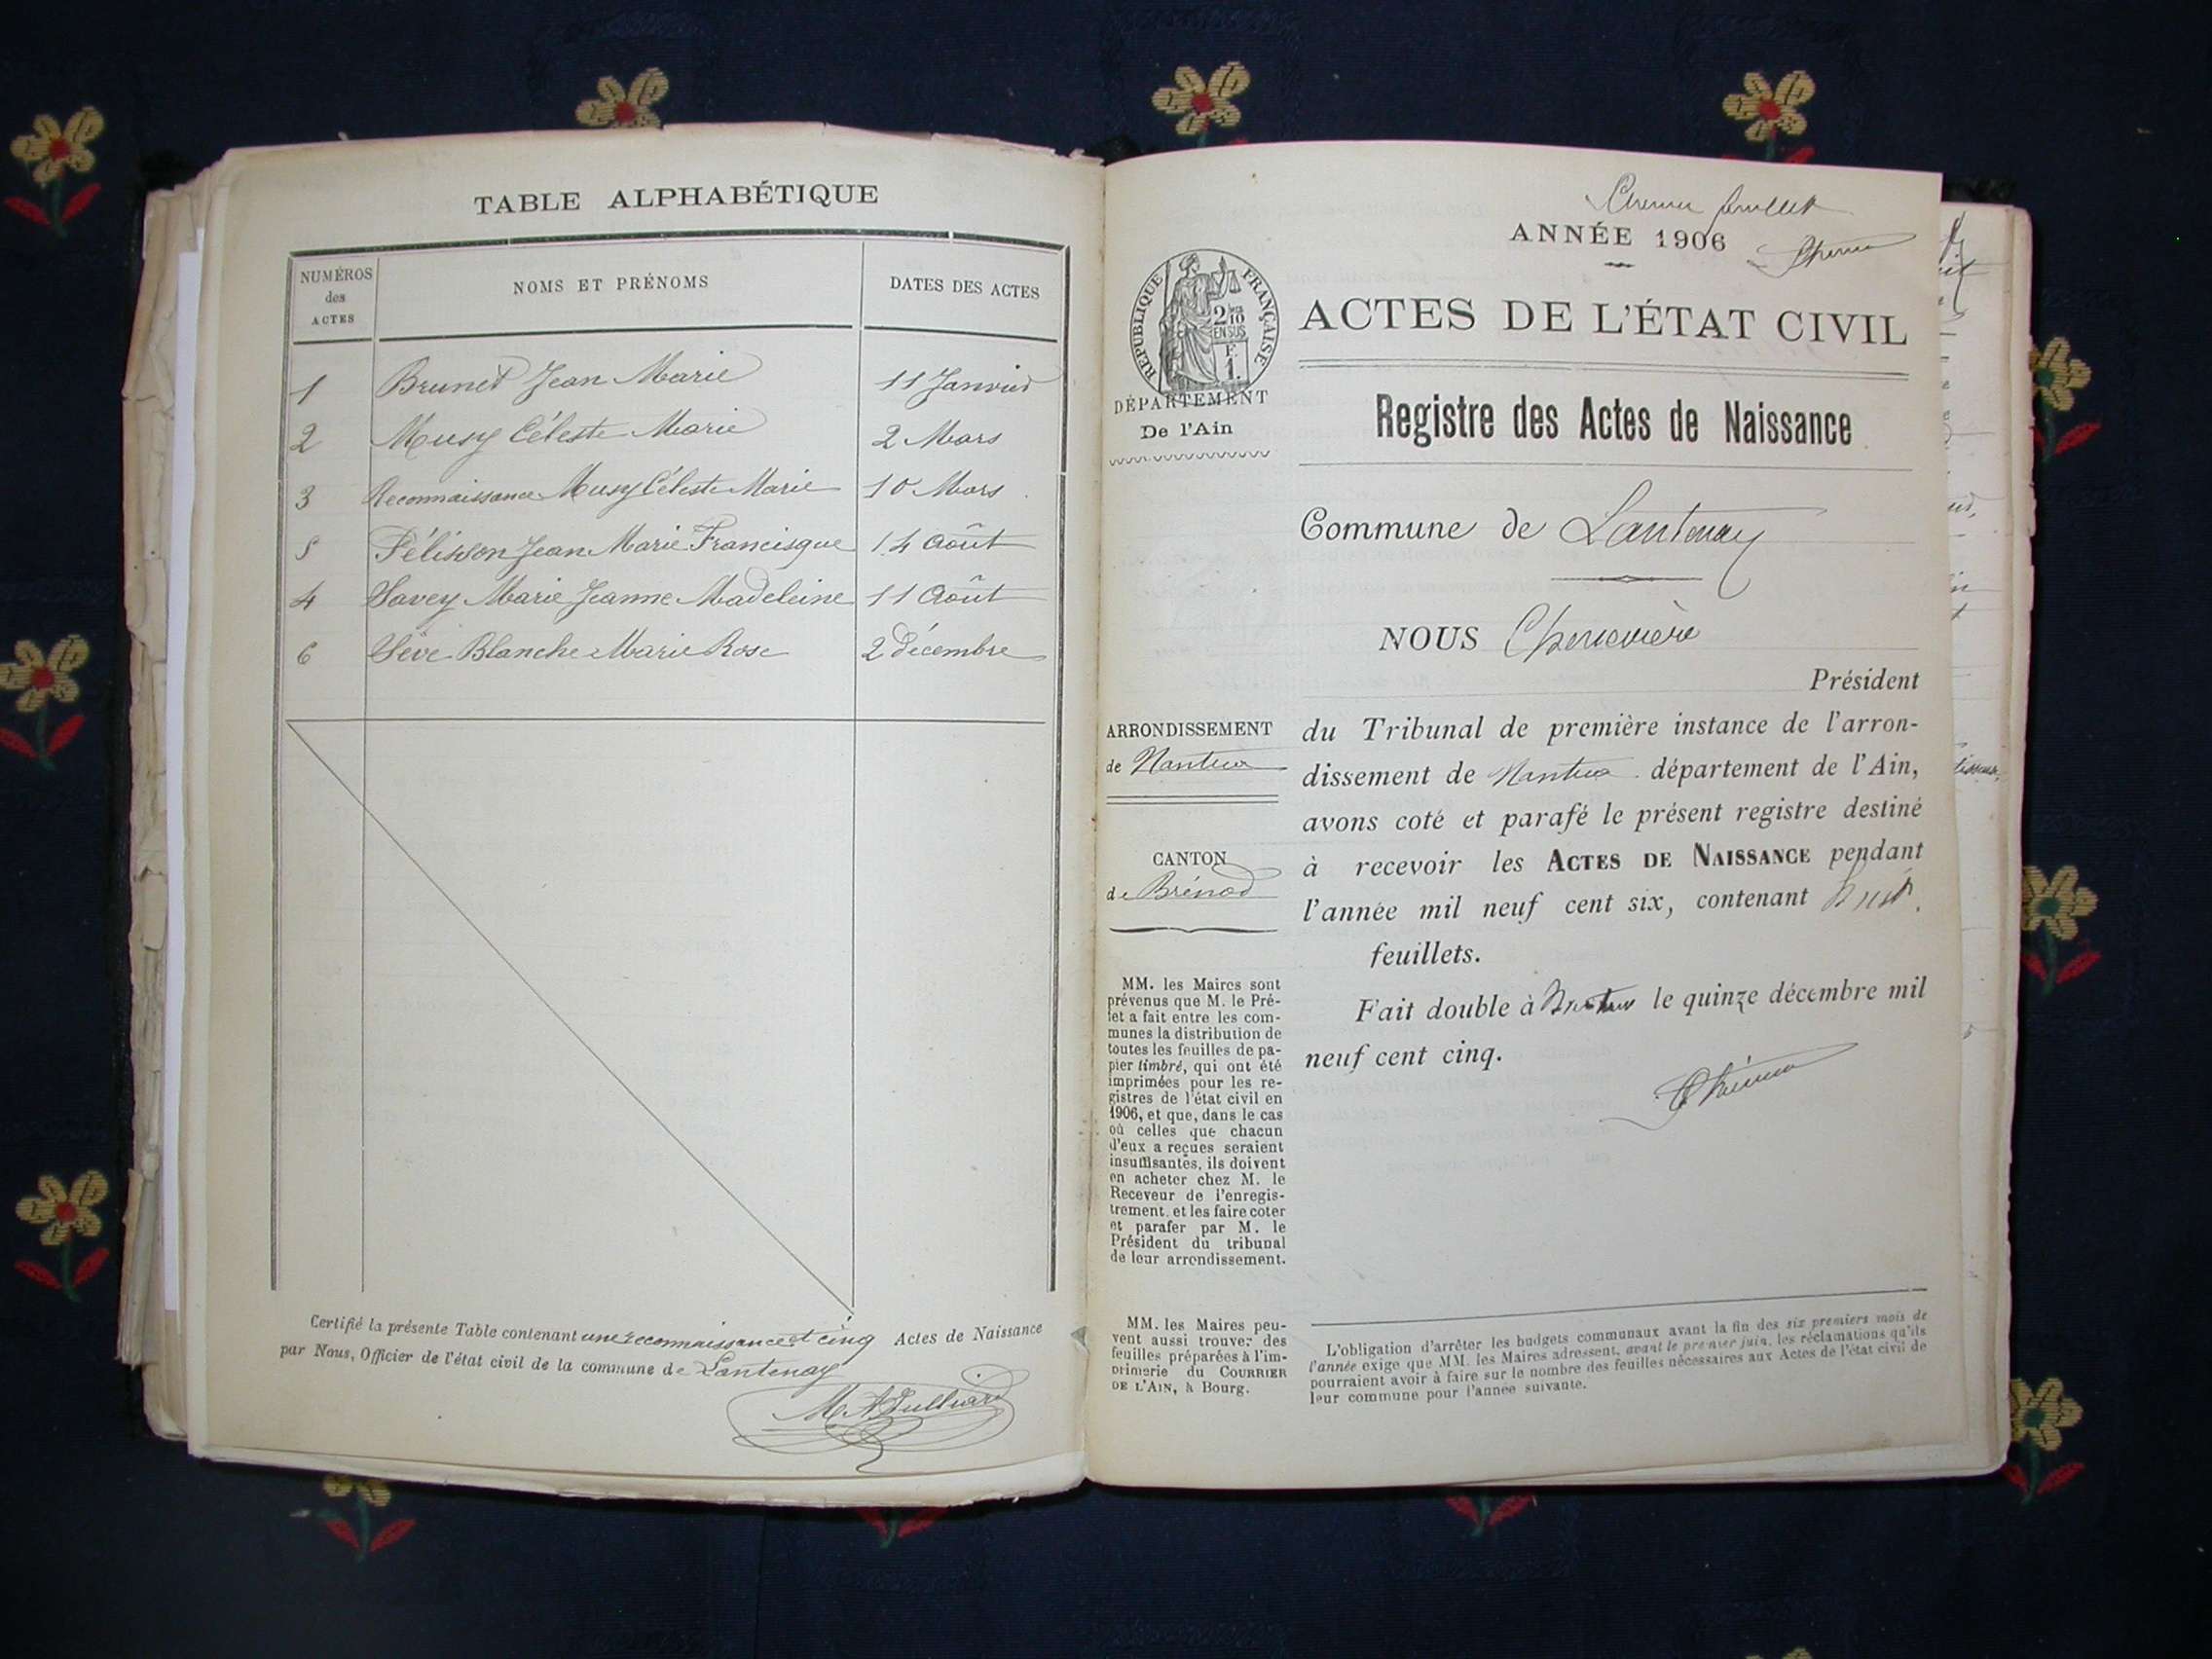 TABLE ALPHABÉTIQUE
NUMÉROS des ACTES
NOMS ET PRÉNOMS
DATES DES ACTES
1 Brunet Jean Marie 11 Janvier
2 Musy Céleste Marie 2 Mars
3 Reconnaissance Musy Céleste Marie 10 Mars
5 Pélisson Jean Marie Francisque 14 Août
4 Savey Marie Jeanne Madeleine 11 Août
6 Sève Blanche Marie Rose 2 décembre
Certifié la présente Table contenant une reconnaissance et cinq Actes de Naissance
par Nous, Officier de l'état civil de la commune de Lantenay
ANNÉE 1906
RÉPUBLIQUE FRANÇAISE
2/10
EN SUS
F.
1.
ACTES DE L'ÉTAT CIVIL
DÉPARTEMENT
De l'Ain
Registre des Actes de Naissance
Commune de Lantenay
NOUS
Président
ARRONDISSEMENT
de Nantua
CANTON
de Brénod
du Tribunal de première instance de l'arron-
dissement de Nantua département de l'Ain,
avons coté et parafé le présent registre destiné
à recevoir les ACTES DE NAISSANCE pendant
l'année mil neuf cent six, contenant huit
feuillets.
Fait double à Nantua le quinze décembre mil
neuf cent cinq.
MM. les Maires sont
prévenus que M. le Pré-
fet a fait entre les com-
munes la distribution de
toutes les feuilles de pa-
pier timbré, qui ont été
imprimées pour les re-
gistres de l'état civil en
1906, et que, dans le cas
où celles que chacun
d'eux a reçues seraient
insuffisantes, ils doivent
en acheter chez M. le
Receveur de l'enregis-
trement, et les faire coter
et parafer par M. le
Président du tribunal
de leur arrondissement.
MM. les Maires peu-
vent aussi trouver des
feuilles préparées à l'im-
primerie du COURRIER
DE L'AIN, à Bourg.
L'obligation d'arrêter les budgets communaux avant la fin des six premiers mois de
l'année exige que MM. les Maires adressent, avant le premier juin, les réclamations qu'ils
pourraient avoir à faire sur le nombre des feuilles nécessaires aux Actes de l'état civil de
leur commune pour l'année suivante.